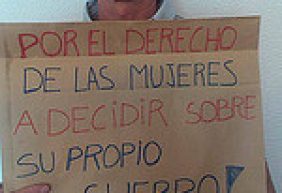 POR EL DERECHO
DE LAS MUJERES
A DECIDIR SOBRE
SU PROPIO
CUERPO!